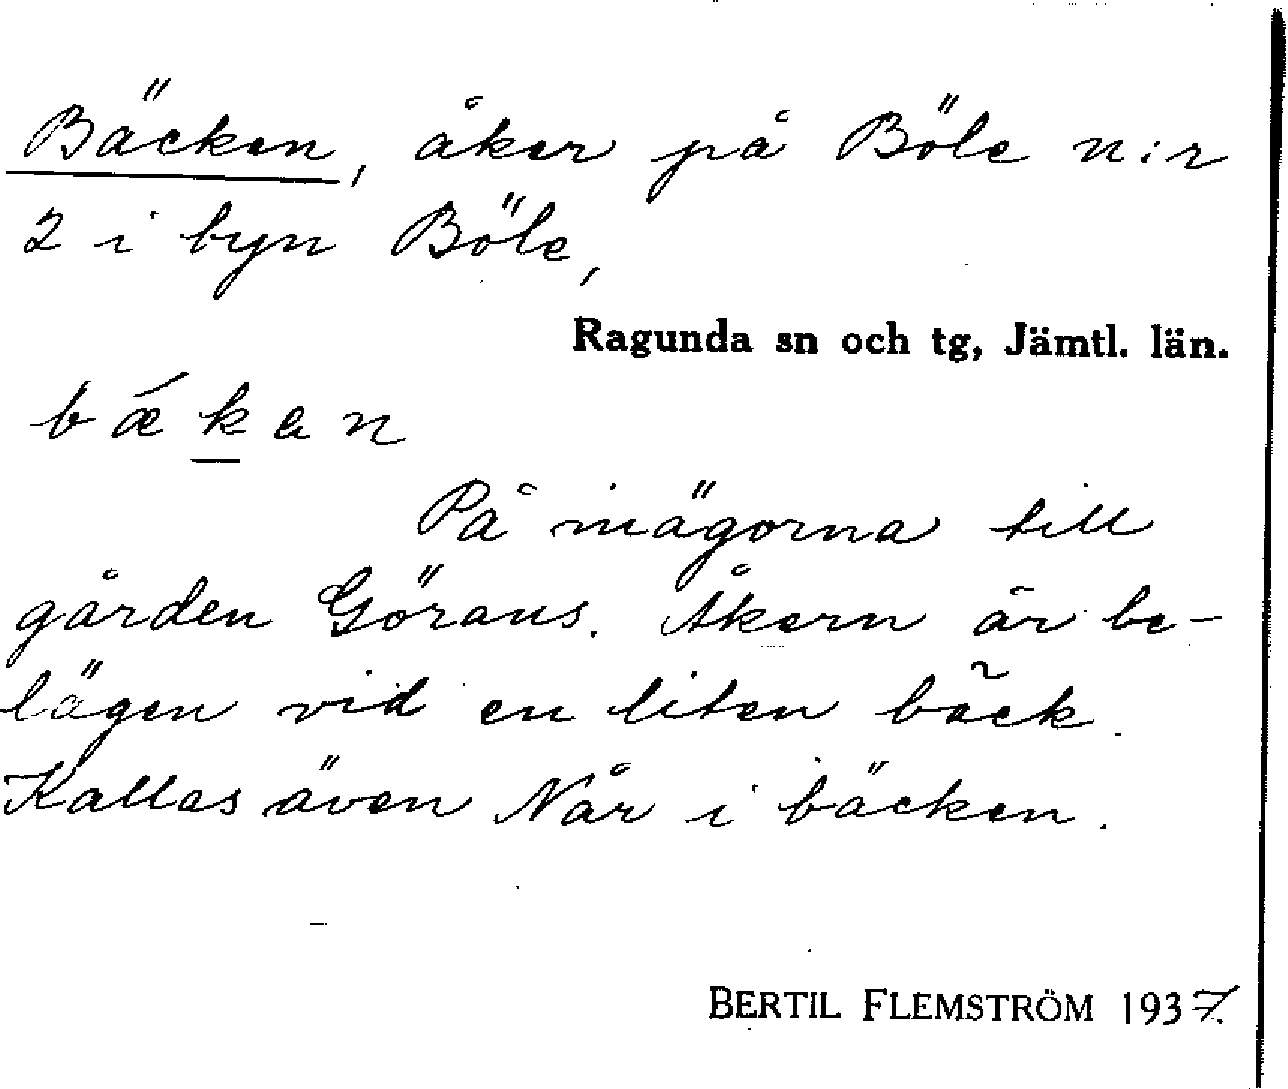 Bäcken, åker på Böle n:r
2 i byn Böle,
Ragunda sn och tg, Jämtl. län.
bǽkan
På inägorna till
gården Görans. Åkern är be-
lägen vid en liten bäck.
Kallas även När i bäcken.
BERTIL FLEMSTRÖM 1937.